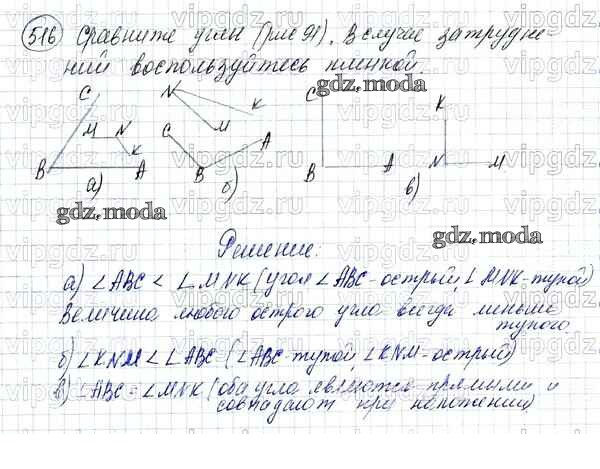 516 Сравните углы (рис 91). В случае затрудне-
ний воспользуйтесь пленкой.
gdz.moda
C N K C K
M N C M A
B A B B A N M
а) б) в)
gdz.moda
gdz.moda
Решение:
а) ∠ABC < ∠MNK (угол ∠ABC-острый, ∠MNK-тупой)
Величина любого острого угла всегда меньше
тупого.
б) ∠KNM < ∠ABC (∠ABC-тупой, ∠KNM-острый)
в) ∠ABC = ∠MNK (оба угла являются прямыми и
совпадают при наложении)
vipgdz.ru